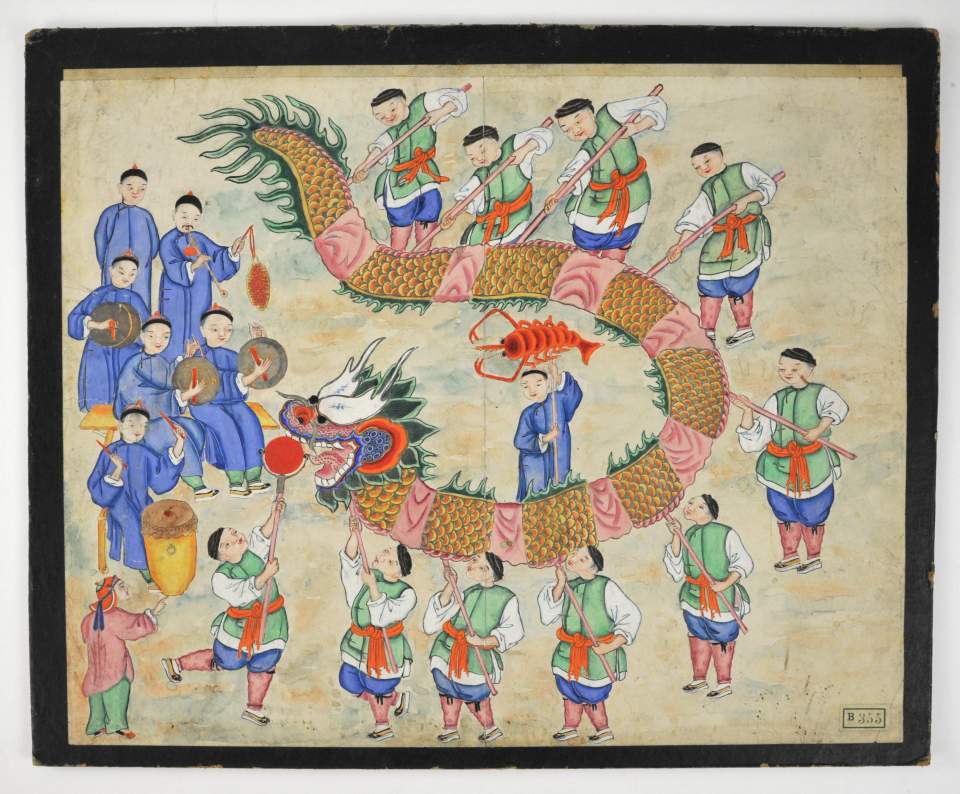 B 355